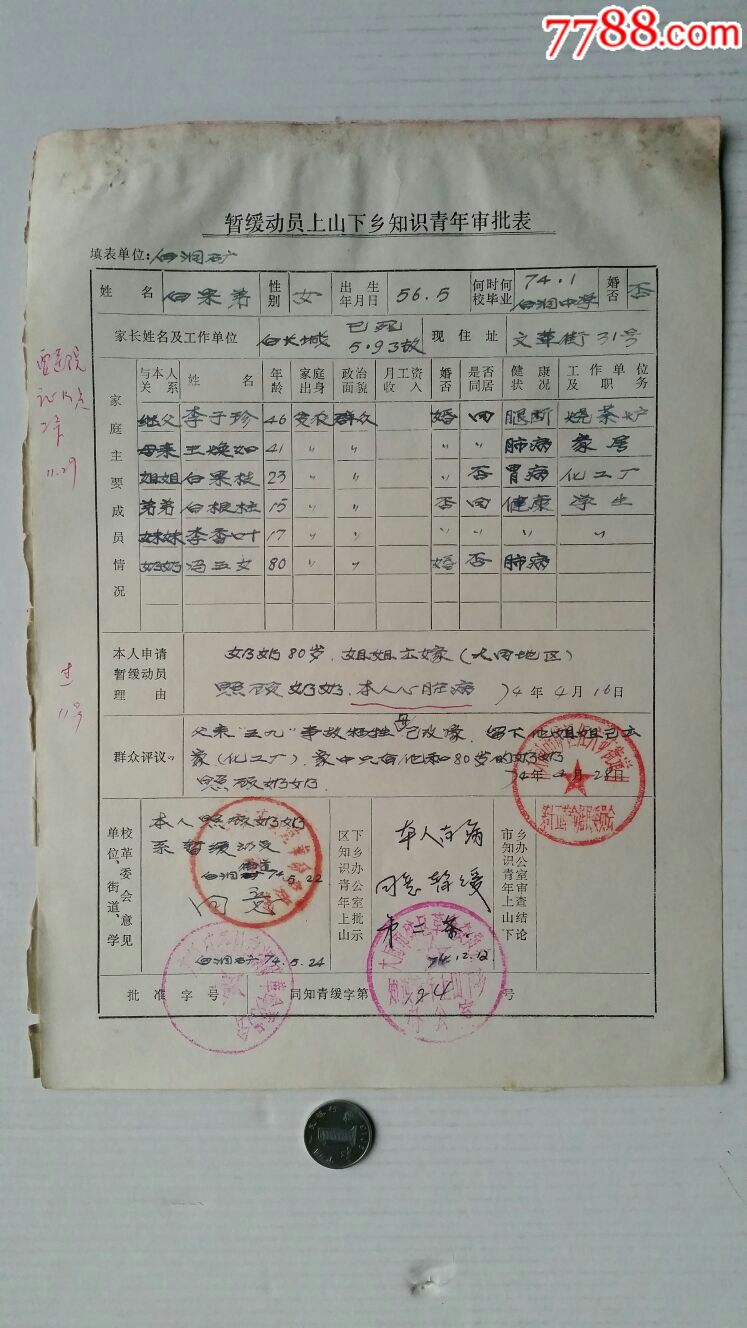 7788.com
暂缓动员上山下乡知识青年审批表
填表单位:白洞矿
姓名 白果弟 性别 女 出生年月日 56.5 何时何校毕业 74.1 白洞中学 婚否 否
家长姓名及工作单位 白长城 已死 5.9事故 现住址 文革街31号
家庭主要成员情况
与本人关系 姓名 年龄 家庭出身 政治面貌 月工资收入 婚否 是否同居 健康状况 工作单位及职务
继父 李子珍 46 贫农 群众 婚 同 腿断 烧茶炉
母亲 王焕如 41 〃 〃 〃 〃 肺病 家居
姐姐 白果枝 23 〃 〃 〃 否 胃病 化工厂
弟弟 白根柱 15 〃 〃 否 同 健康 学生
妹妹 李香叶 17 〃 〃 〃 〃 〃 〃
奶奶 冯五女 80 〃 〃 婚 否 肺病
本人申请暂缓动员理由
奶奶80岁.姐姐出嫁(大同地区)
照顾奶奶.本人心脏病 74年4月16日
群众评议
父亲"五九"事故牺牲母已改嫁.留下他姐姐已出
家(化工厂).家中只有他和80岁的奶奶
照顾奶奶 74年4月28日
单位、街道、学校革委会意见
本人照顾奶奶
系暂缓动员
白洞街道 74.5.22
同意
白洞矿 74.5.24
区知识青年上山下乡办公室批示
本人有病
同意暂缓
第二条.
74.12.12
市知识青年上山下乡办公室审查结论
批准字号 同知青缓字第24号
11.29
11号